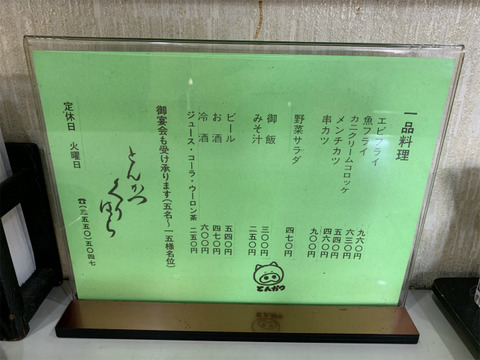 一品料理
エビフライ 九六〇円
魚フライ 六三〇円
カニクリームコロッケ 五四〇円
メンチカツ 四六〇円
串カツ 九〇〇円
野菜サラダ 四七〇円
御飯 三〇〇円
みそ汁 二五〇円
ビール 五四〇円
お酒 四七〇円
冷酒 六〇〇円
ジュース・コーラ・ウーロン茶 二五〇円
御宴会も受け承ります(五名~一五様名位)
とんかつ
くりはら
定休日 火曜日
とんかつ